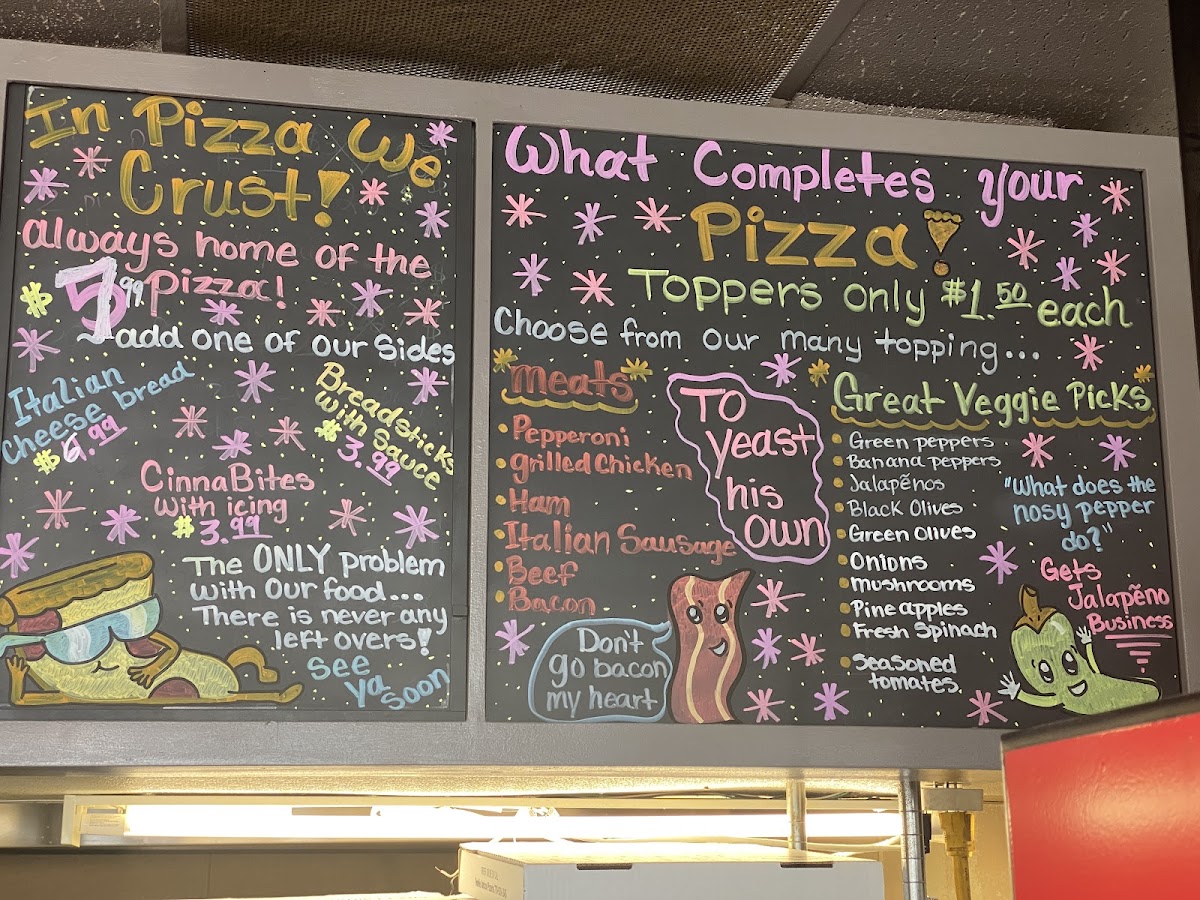 In Pizza We
Crust!
always home of the
$ 7.99 pizza!
~add one of our sides
Italian
Cheese bread
$6.99
Breadsticks
with Sauce
$3.99
CinnaBites
with icing
$3.99
The ONLY problem
with our food...
There is never any
left overs!
See
ya
soon
What Completes your
Pizza!
Toppers only $1.50 each
Choose from our many topping...
meats
Pepperoni
grilled Chicken
Ham
Italian Sausage
Beef
Bacon
To
yeast
his
own
Don't
go bacon
my heart
Great Veggie Picks
Green peppers
Banana peppers
Jalapẽnos
Black Olives
Green Olives
Onions
mushrooms
Pineapples
Fresh Spinach
Seasoned
tomates.
"What does the
nosy pepper
do?"
Gets
Jalapẽno
Business